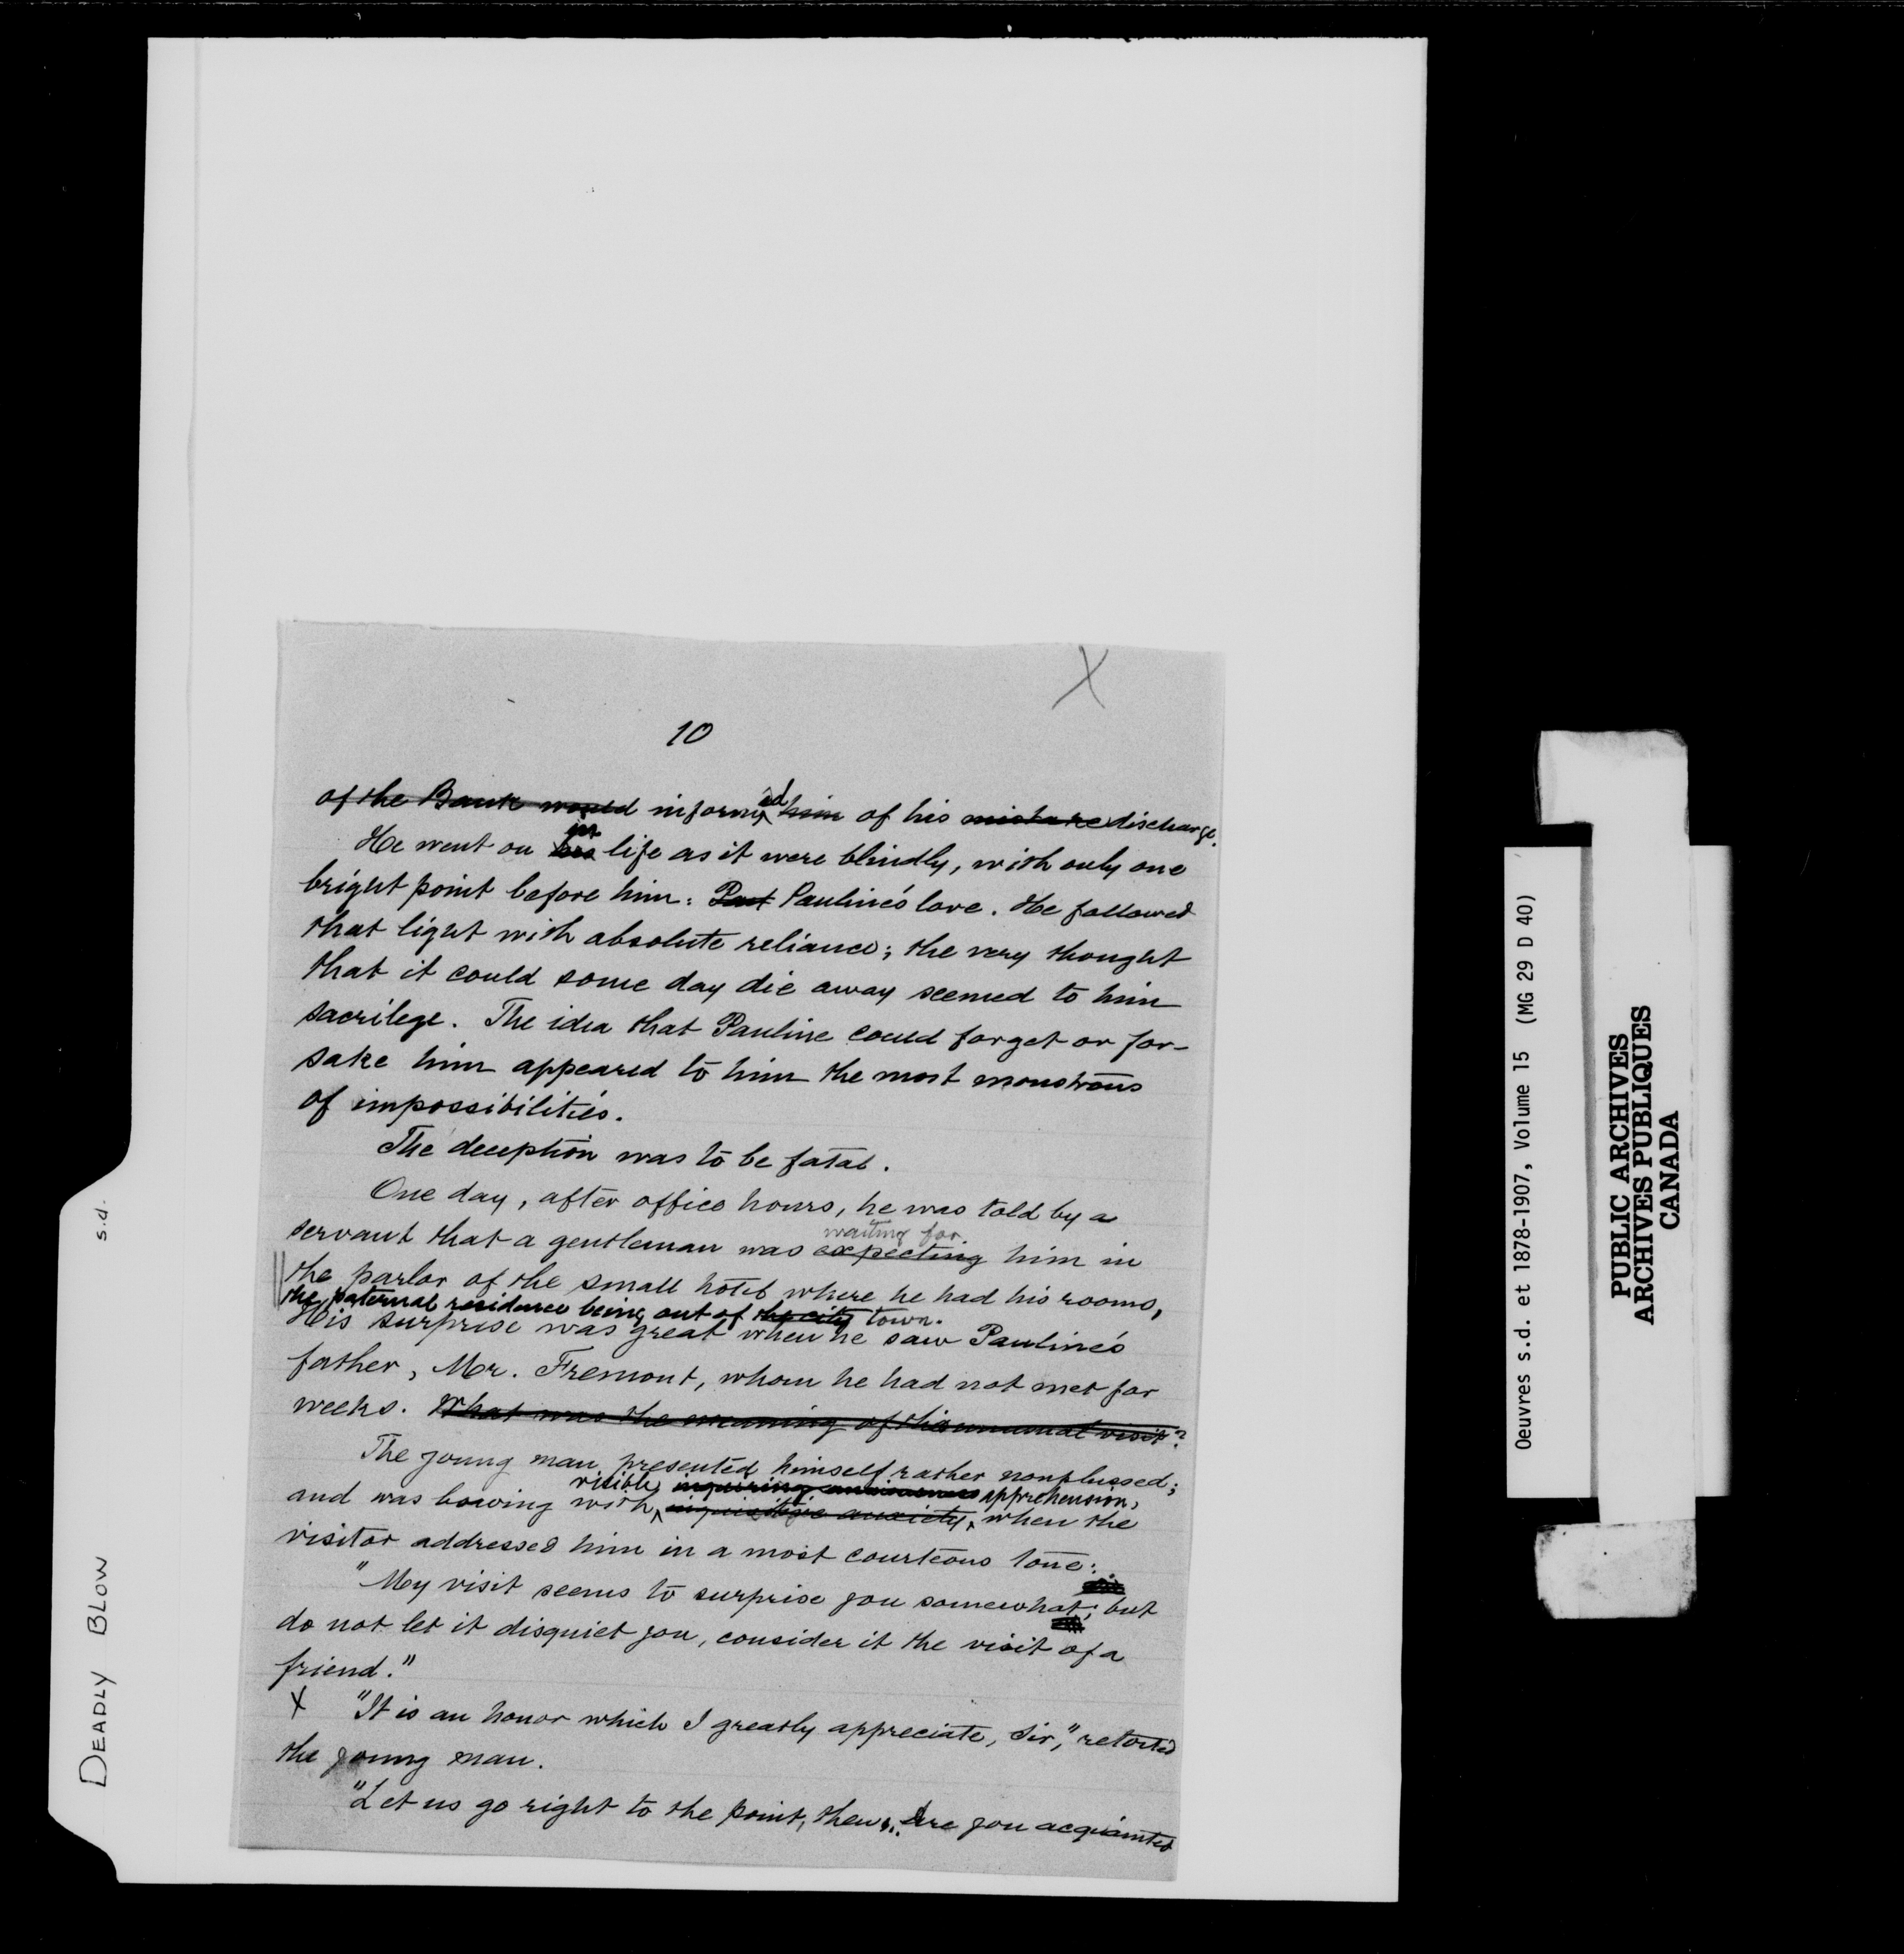 X
10
of the Bank would informed him of his mistake discharge.
in
He went on his life as it were blindly, with only one
bright point before him: Paul Pauline's love. He followed
that light with absolute reliance; the very thought
that it could some day die away seemed to him
sacrilege. The idea that Pauline could forget or for-
sake him appeared to him the most monstrous
of impossibilities.
The deception was to be fatal.
One day, after office hours, he was told by a
waiting for
servant that a gentleman was expecting him in
the parlor of the small hotel where he had his rooms,
the paternal residence being out of the city town.
His surprise was great when he saw Pauline's
father, Mr. Fremont, whom he had not met for
weeks. What was the meaning of this unusual visit?
The young man presented himself rather nonplussed;
visible inquiring apprehension,
and was bowing with inquisitive anxiety, when the
visitor addressed him in a most courteous tone:
"My visit seems to surprise you somewhat; but
do not let it disquiet you, consider it the visit of a
friend."
X "It is an honor which I greatly appreciate, Sir," retorted
the young man.
"Let us go right to the point, then... Are you acquainted
DEADLY BLOW s.d.
Oeuvres s.d. et 1878-1907, Volume 15 (MG 29 D 40)
PUBLIC ARCHIVES
ARCHIVES PUBLIQUES
CANADA